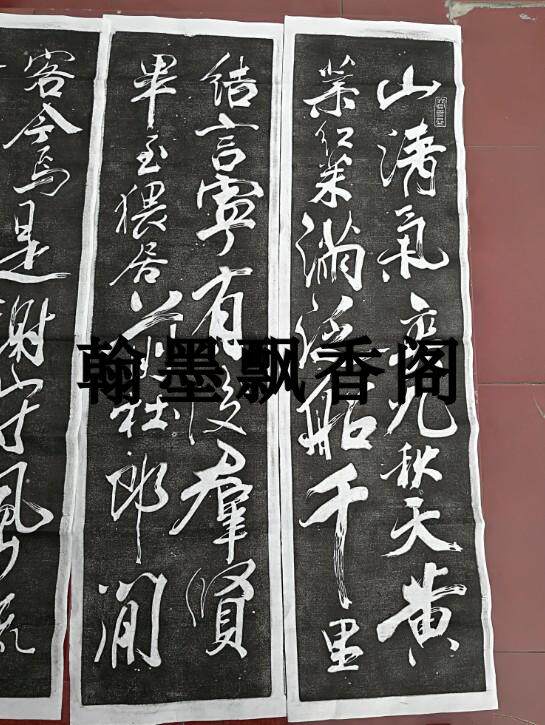 山清氣爽九秋天黃
菊紅茱滿泛船千里
結言寧有後羣賢
畢至猥居前杜郎閒
客今焉是謝守風流
翰墨飘香阁